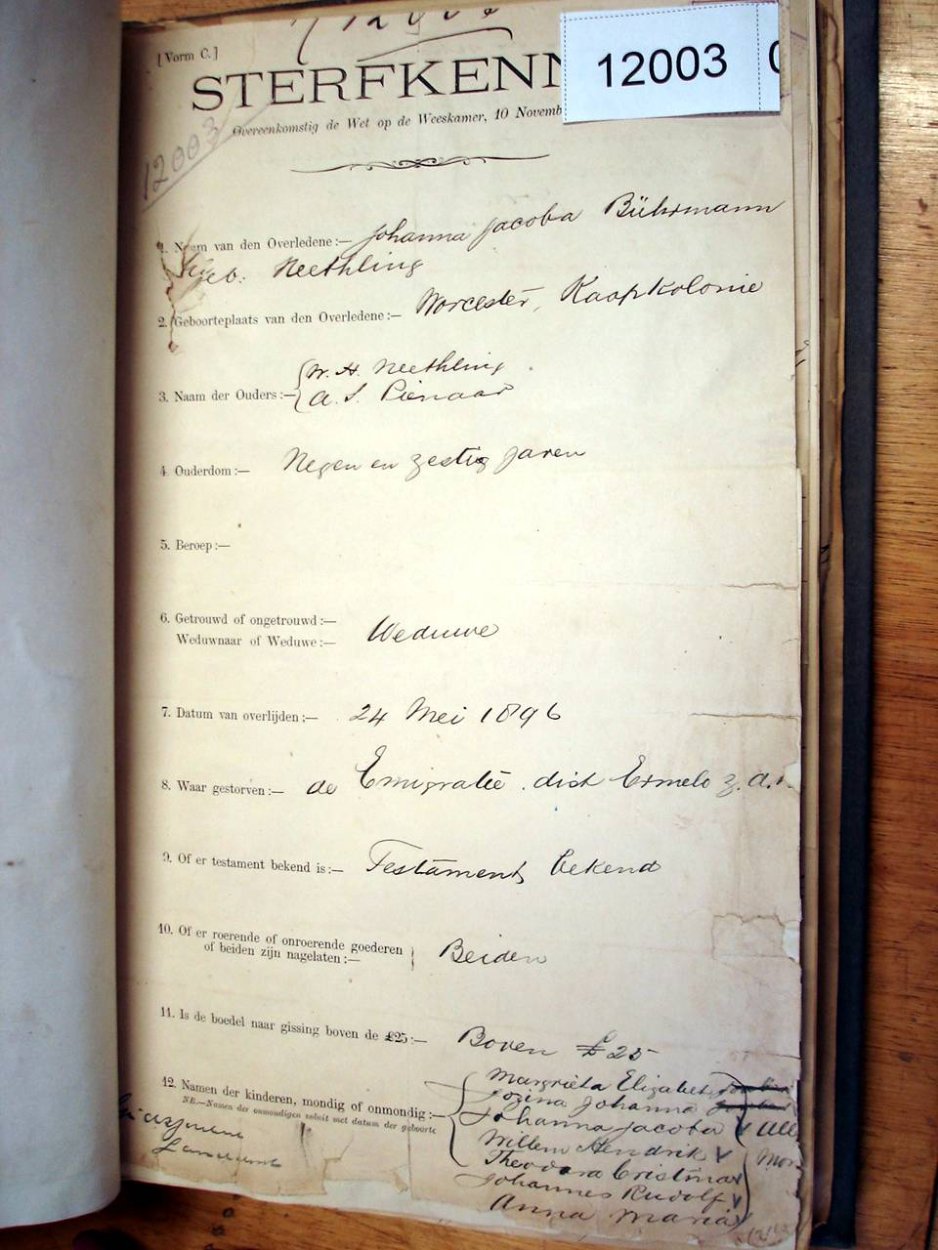 12003
[Vorm C.]
STERFKENN
Overeenkomstig de Wet op de Weeskamer, 10 Novemb
12003
1. Naam van den Overledene:— Johanna Jacoba Bührmann
geb. Neethling
2. Geboorteplaats van den Overledene:— Worcester, Kaapkolonie
3. Naam der Ouders:— W. H. Neethling
A. S. Pienaar
4. Ouderdom:— Negen en zestig Jaren
5. Beroep:—
6. Getrouwd of ongetrouwd:—
Weduwnaar of Weduwe:— Weduwe
7. Datum van overlijden:— 24 Mei 1896
8. Waar gestorven:— de Emigratie dist Ermelo z.a.
9. Of er testament bekend is:— Testament bekend
10. Of er roerende of onroerende goederen
of beiden zijn nagelaten:— Beiden
11. Is de boedel naar gissing boven de £25:— Boven £25
12. Namen der kinderen, mondig of onmondig:— Margrieta Elizabeth
NB.—Namen der onmondigen voluit met datum der geboorte
Johanna
Johanna Jacoba
Willem Hendrik
Theodora Cristina
Johannes Rudolf
Anna Maria